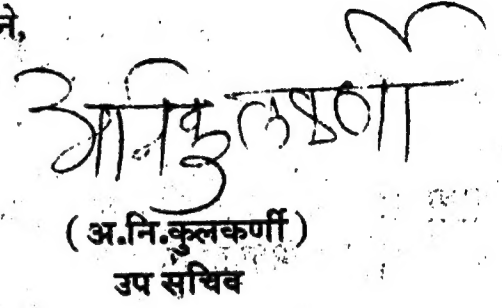 ने,
अनिकुलकर्णी
( अ.नि.कुलकर्णी )
उप सचिव